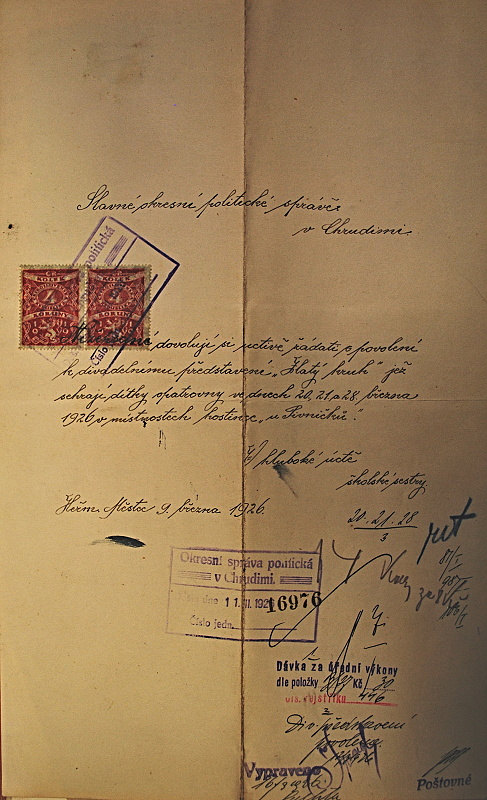 Slavné okresní politické správě
v Chrudimi.
politická
Číslo
ČR
KOLEK
1
KORUNA
ČR
KOLEK
1
KORUNA
dovolují si uctivě žádati o povolení
k divadelnímu představení „Zlatý kruh" jež
sehrají dítky opatrovny ve dnech 20, 21, a 28, března
1926 v místnostech hostince „u Pivničků".
V hluboké úctě
školské sestry.
Heřm. Městec 9. března 1926.
20. 21. 28
3
Okresní správa politická
v Chrudimi.
dne 11. III. 1926
16976
Číslo jedn.
Dávka za úřední výkony
dle položky Kč 30
čís. rejstříku 446
Div. představení
povoleno
Vypraveno
Poštovné